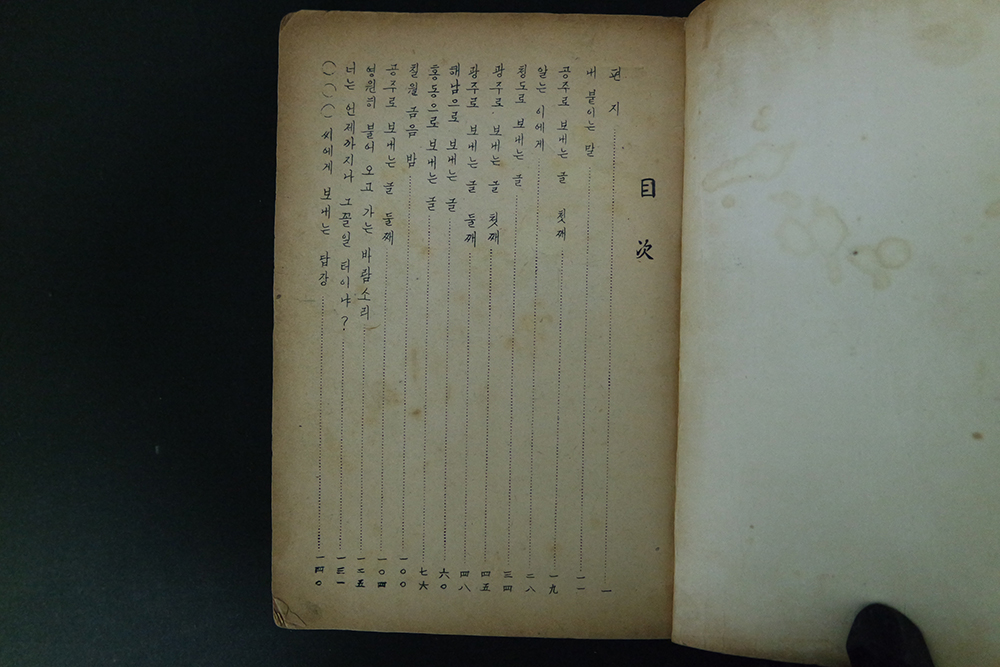 目次
편지 …… 一
내 붙이는 말 …… 一一
공주로 보내는 글 첫째 …… 一九
앓는 이에게 …… 二八
청도로 보내는 글 …… 三四
광주로 보내는 글 첫째 …… 四五
광주로 보내는 글 둘째 …… 四八
해남으로 보내는 글 …… 六〇
홍동으로 보내는 글 …… 七六
칠월 곰음 밤 …… 一〇〇
공주로 보내는 글 둘째 …… 一〇四
영원히 불어 오고 가는 바람소리 …… 一二五
너는 언제까지나 그꼴일 터이냐? …… 一三一
〇〇〇씨에게 보내는 답장 …… 一四〇